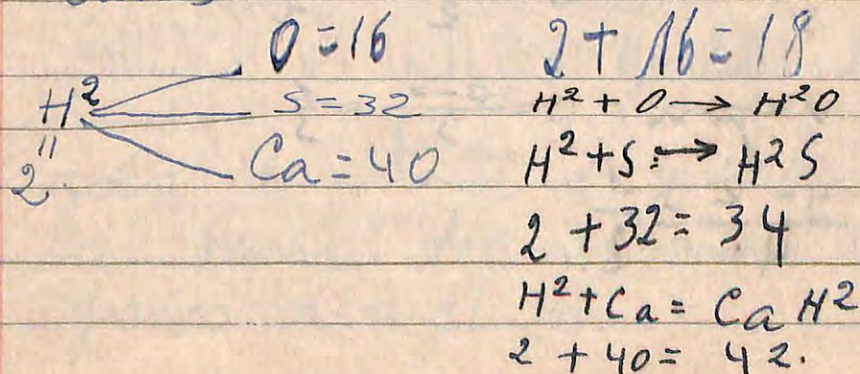 O = 16
H² S = 32
"
2. Ca = 40
2 + 16 = 18
H² + O → H²O
H² + S → H²S
2 + 32 = 34
H² + Ca = CaH²
2 + 40 = 42.